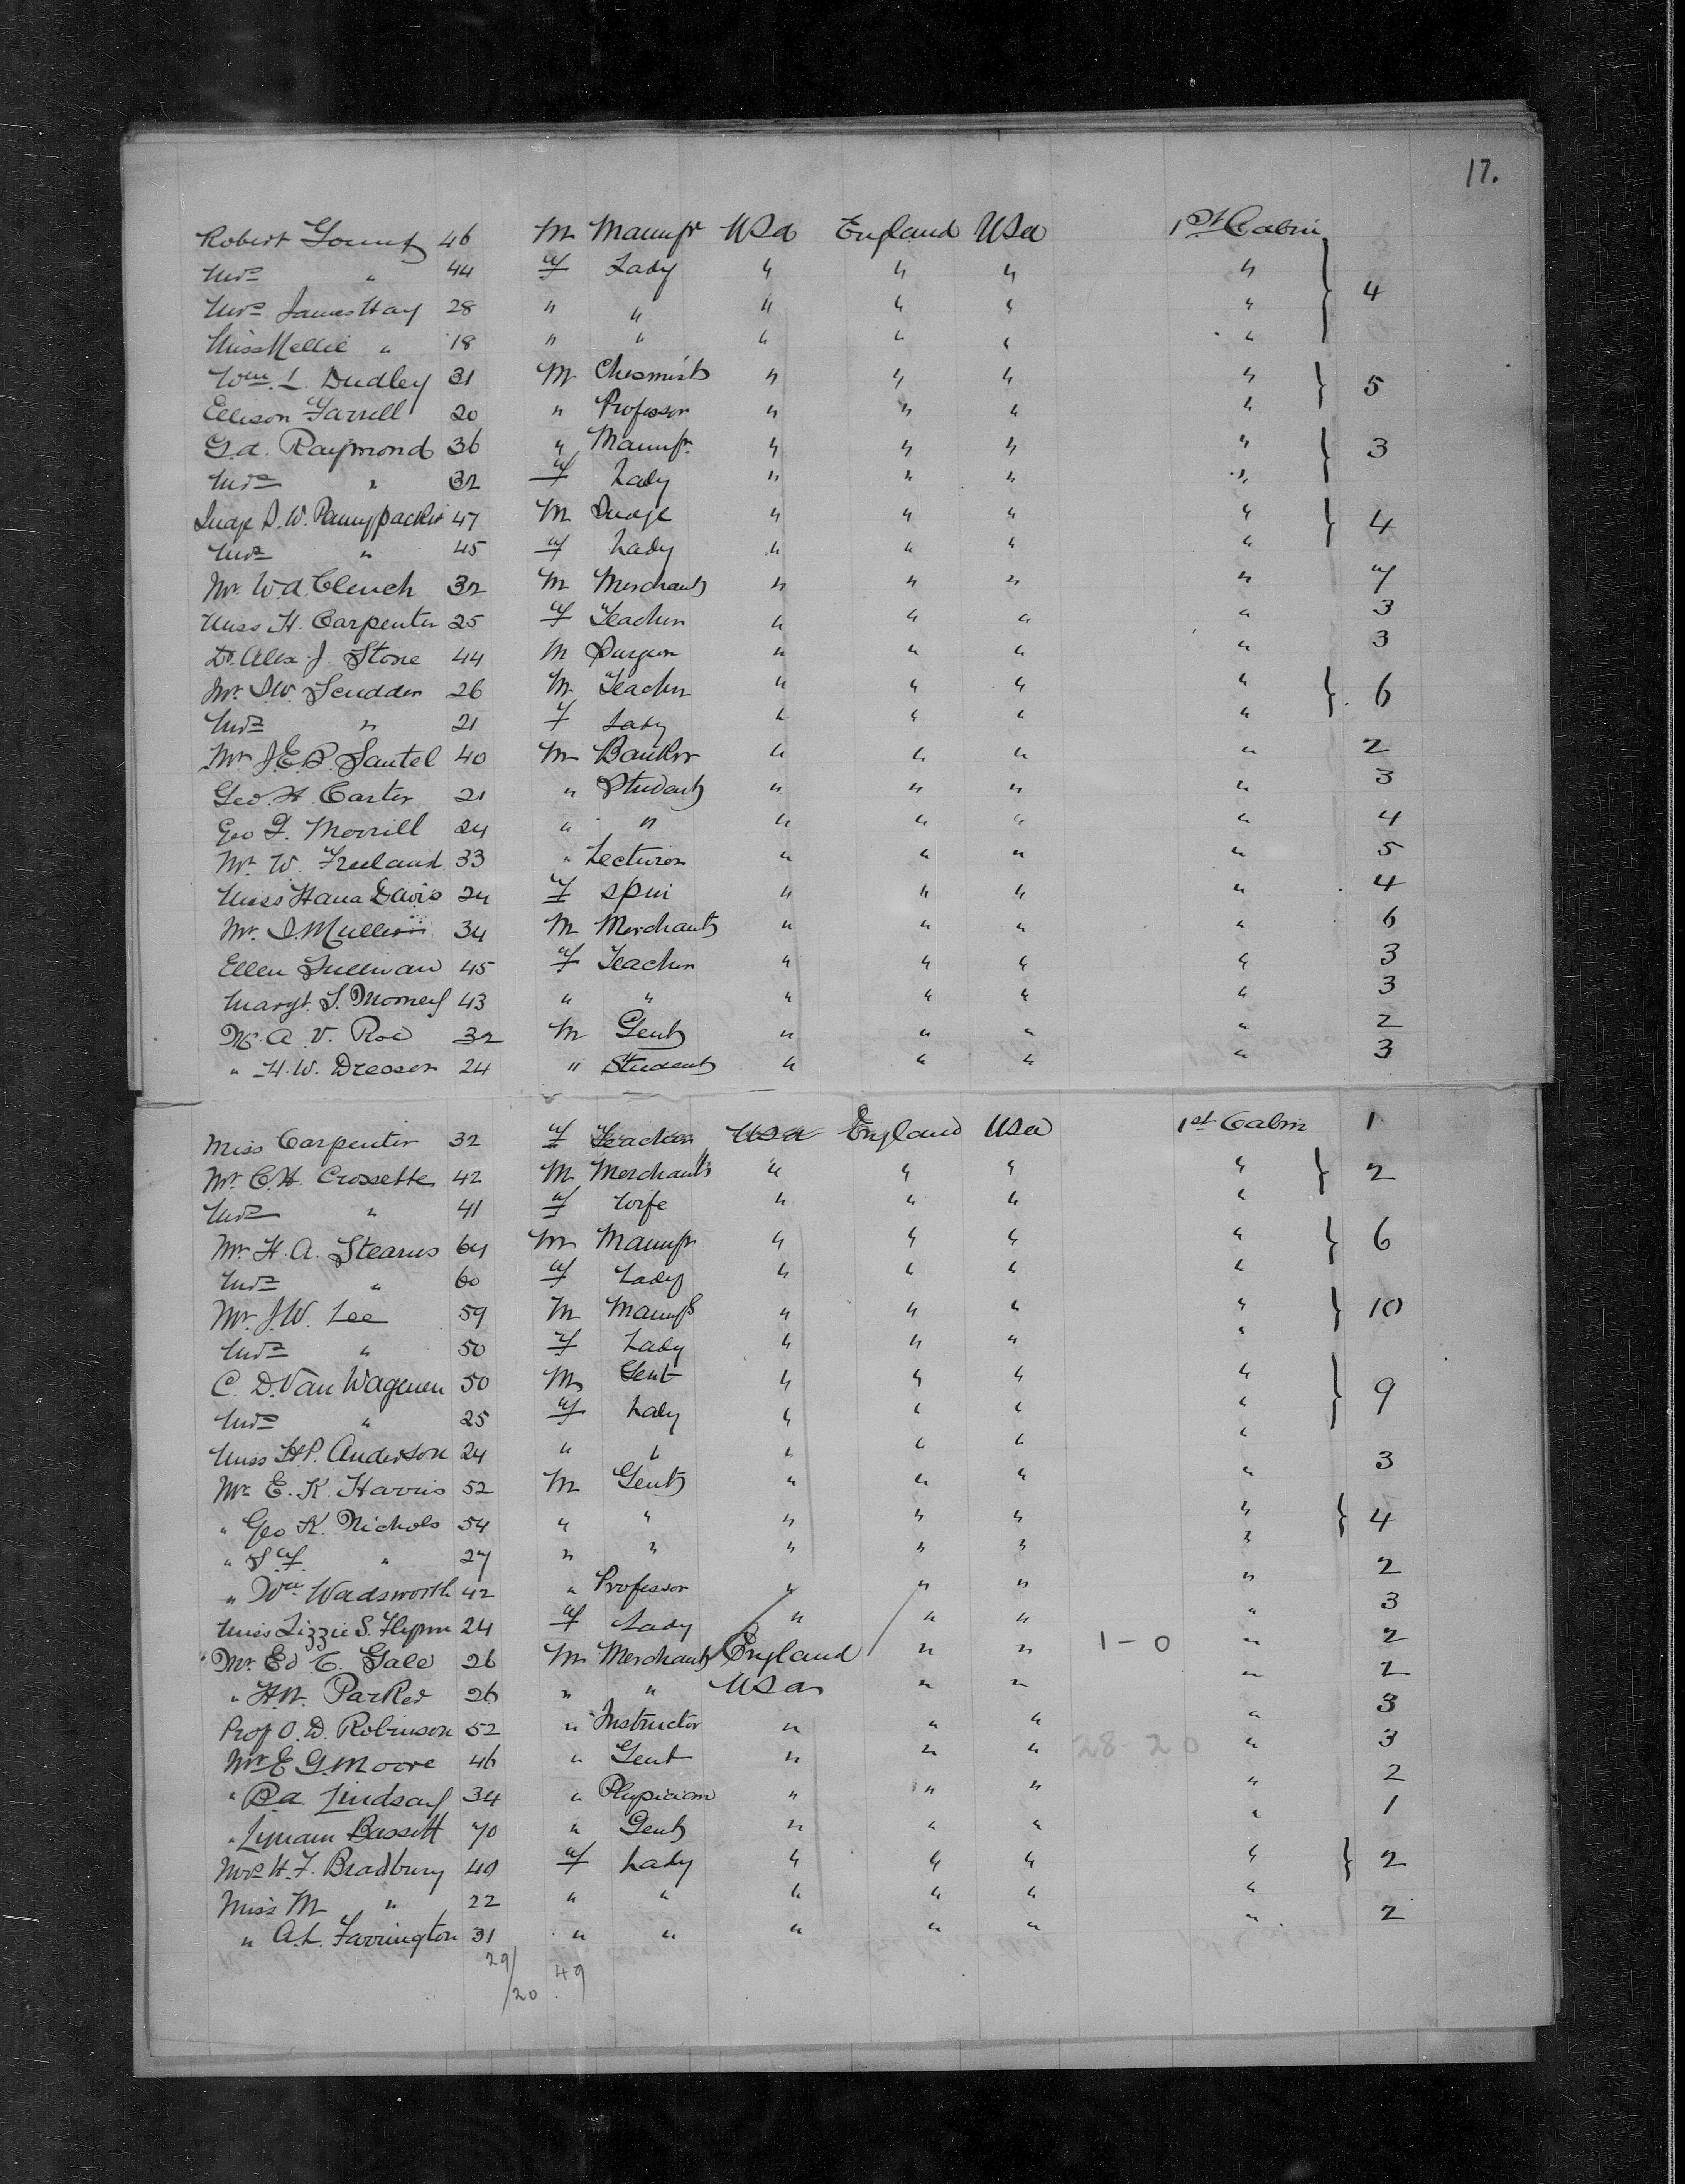 17.
Robert 46 M Manufr USA England USA 1st Cabin
Mrs " 44 f Lady " " " " 4
Mrs James Hay 28 " " " " " "
Miss Nellie " 18 " " " " " "
Wm. L. Dudley 31 M Chesmist " " " " 5
Ellison 20 " Professor " " " "
G.A. Raymond 36 " Manufr " " " " 3
Mrs " 32 f Lady " " " "
Judge S.W. Pannypacker 47 M Judge " " " " 4
Mrs " 45 f Lady " " " "
Mr. W.A. Clench 32 M Merchant " " " " 7
Miss H. Carpenter 25 f Teacher " " " " 3
Dr. Alex. J. Stone 44 M Surgeon " " " " 3
Mr. S.W. Scudder 26 M Teacher " " " " 6
Mrs " 21 f Lady " " " "
Mr J.E.P. 40 M Banker " " " " 2
Geo. H. Carter 21 " Student " " " " 3
Geo F. Morrill 24 " " " " " " 4
Mr. W. Freeland 33 " Lecturer " " " " 5
Miss Hana Davis 24 f spin " " " " 4
Mr. S. 34 M Merchant " " " " 6
Ellen Sullivan 45 f Teacher " " " " 3
Margt. S. 43 " " " " " " 3
Mr. A. V. Roe 32 M Gent " " " " 2
" H.W. Dresser 24 " Student " " " " 3
Miss Carpenter 32 f Teacher USA England USA 1st Cabin 1
Mr. C.H. Crossette 42 M Merchant " " " " 2
Mrs " 41 f Wife " " " "
Mr. H. A. Stearns 64 M Manufr " " " " 6
Mrs " 60 f Lady " " " "
Mr. J.W. Lee 59 M Manufr " " " " 10
Mrs " 50 f Lady " " " "
C. D. Van Wagenen 50 M Gent " " " " 9
Mrs " 25 f Lady " " " "
Miss H.P. Anderson 24 " " " " " "
Mr. E. K. Harris 52 M Gent " " " " 3
" Geo K. Nichols 54 " " " " " " 4
" S. f. " 27 " " " " " "
" Wm Wadsworth 42 " Professor " " " " 2
Miss Lizzie S. Flynn 24 f Lady " " " " 3
Mr. Ed C. Gale 26 M Merchant England " " 1-0 " 2
" H.W. Parker 26 " " USA " " " 2
Prof O. D. Robinson 52 " Instructor " " " " 3
Mr E G. Moore 46 " Gent " " " 28-20 " 3
" B.A. Lindsay 34 " Physician " " " " 2
" Lyman Bassett 70 " Gent " " " " 1
Mrs H. F. Bradbury 40 f Lady " " " " 2
Miss M " 22 " " " " " "
" A.L. Farrington 31 " " " " " " 2
29/20 49